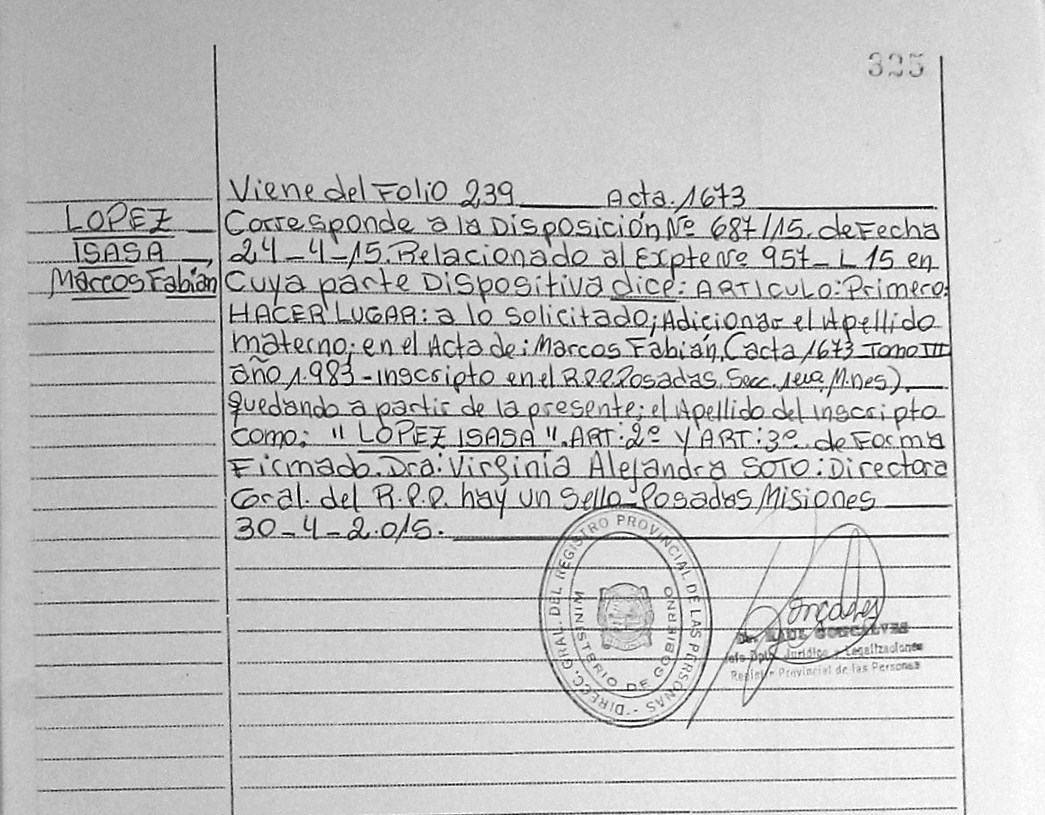 325
Viene del Folio 239 Acta. 1673
LOPEZ
ISASA
Marcos Fabián
Corresponde a la Disposición Nº 687/15. de Fecha
24-4-15. Relacionado al Expte Nro 957-L 15 en
Cuya parte Dispositiva dice: ARTICULO: Primero:
HACER LUGAR: a lo solicitado; Adicionar el Apellido
materno; en el Acta de: Marcos Fabián, (acta 1673 Tomo III
año 1.983-inscripto en el R.P.P. Posadas, Secc. 1era, M.nes).
quedando a partir de la presente; el Apellido del inscripto
como; "LOPEZ ISASA". ART:2º y ART:3º. de Forma
Firmado. Dra: Virginia Alejandra SOTO: Directora
Gral. del R.P.P. hay un Sello. Posadas Misiones
30-4-2.015.
DIRECC. GRAL. DEL REGISTRO PROVINCIAL DE LAS PERSONAS -
MINISTERIO DE GOBIERNO
Gonçalves
Dr. RAUL GONCALVES
Jefe Dpto. Jurídico y Legalizaciones
Registro Provincial de las Personas